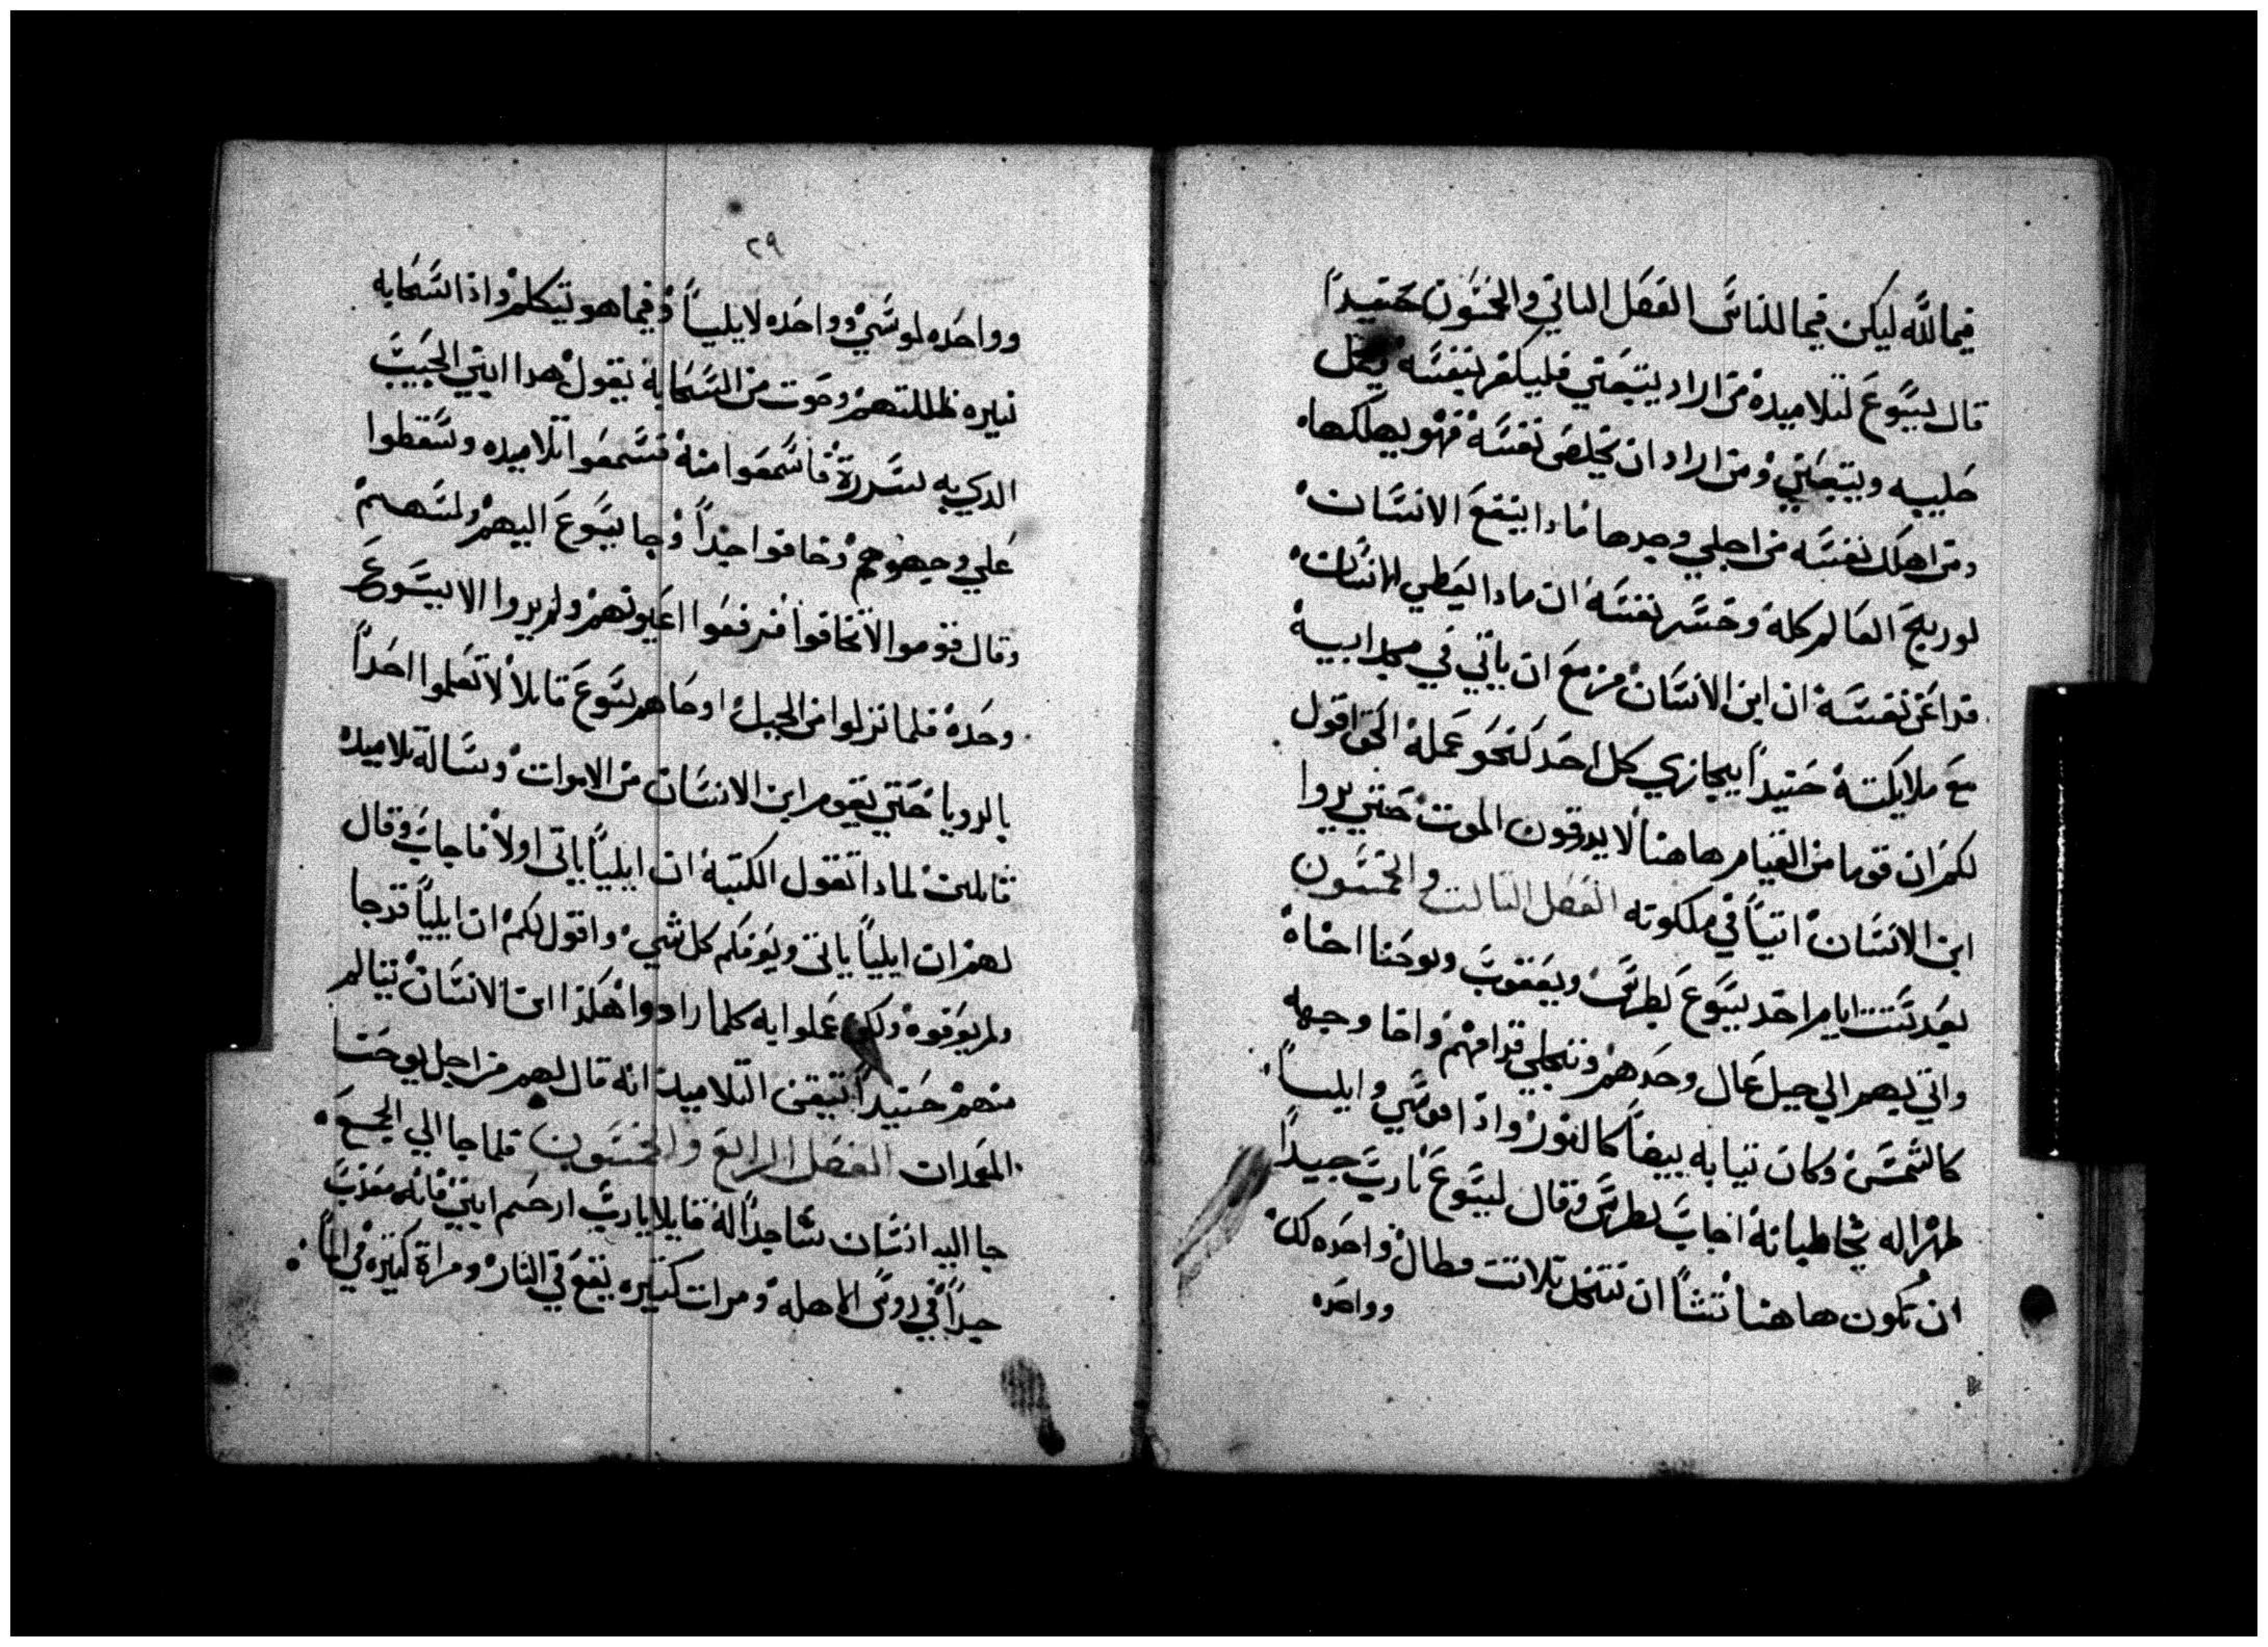 فيما لله ليكن فيما للناس الفصل التاني والخمسون حنيداً
قال يسوع لتلاميده من اراد يتبعني فليكفر بنفسه ويحمل
صليبه ويتبعني ومن اراد ان يخلص نفسه فهو يهلكها
ومن اهلك نفسه من اجلي وجدها مادا ينفع الانسان
لو ربح العالم كله وخسر نفسه ان مادا يعطي الانسان
فدا عن نفسه ان ابن الانسان مزمع ان ياتي في مجد ابيه
مع ملايكته حنيداً يجازي كل احد كنحو عمله الحق اقول
لكم ان قوما من القيام هاهنا لا يدوقون الموت حتي يروا
ابن الانسان اتياً في ملكوته الفصل التالت والخمسون
بعد ستت ايام اخد يسوع بطرس ويعقوب ويوحنا اخاه
واتي بهم الي جبل عال وحدهم وتجلي قدامهم واضا وجهه
كالشمس وكان تيابه بيضاً كالنور وادا موسي وايلياً
ظهرا له يخاطبانه اجاب بطرس وقال ليسوع يارب جيداً
ان نكون هاهنا تشاً ان نتخد تلاتت مطال واحده لك
وواحده
٢٩
وواحده لموسي وواحده لايلياً وفيما هو تيكلم وادا السحابه
نيره ظللتهم وصوت من السحابه يقول هدا ابني الحبيب
الدي به سررة فاسمعوا منه فسمعوا تلاميده وسقطوا
علي وجهوههم وخافوا جداً وجا يسوع اليهم ولمسهم
وقال قوموا لا تخافوا فرفعوا اعيونهم ولم يروا الا يسوع
وحده فلما نزلوا من الجبل اوصاهم يسوع قايلاً لا تعلموا احداً
بالرويا حتي يقوم ابن الانسان من الاموات وساله تلاميده
قايلين لمادا تقول الكتبة ان ايلياً ياتي اولاً فاجاب وقال
لهم ان ايلياً ياتي ويعرفكم كل شي واقول لكم ان ايلياً قد جا
ولم يعرفوه ولكن عملوا به كلما ارادوا هكدا ابن الانسان يتالم
منهم حنيداً تيقن التلاميد انه قال لهم من اجل يوحنا
المعمدان الفصل الرابع والخمسون فلما جا الي الجمع
جا اليه انسان ساجداً له قايلا يارب ارحم ابني فانه معدب
جداً في روس الاهله ومرات كتيره يقع في النار ومراة كتيره في الماً